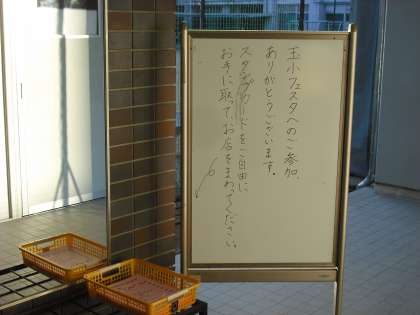 玉小フェスタへのご参加、
ありがとうございます。
スタンプカードをご自由に
お手に取って、お店をまわってください。